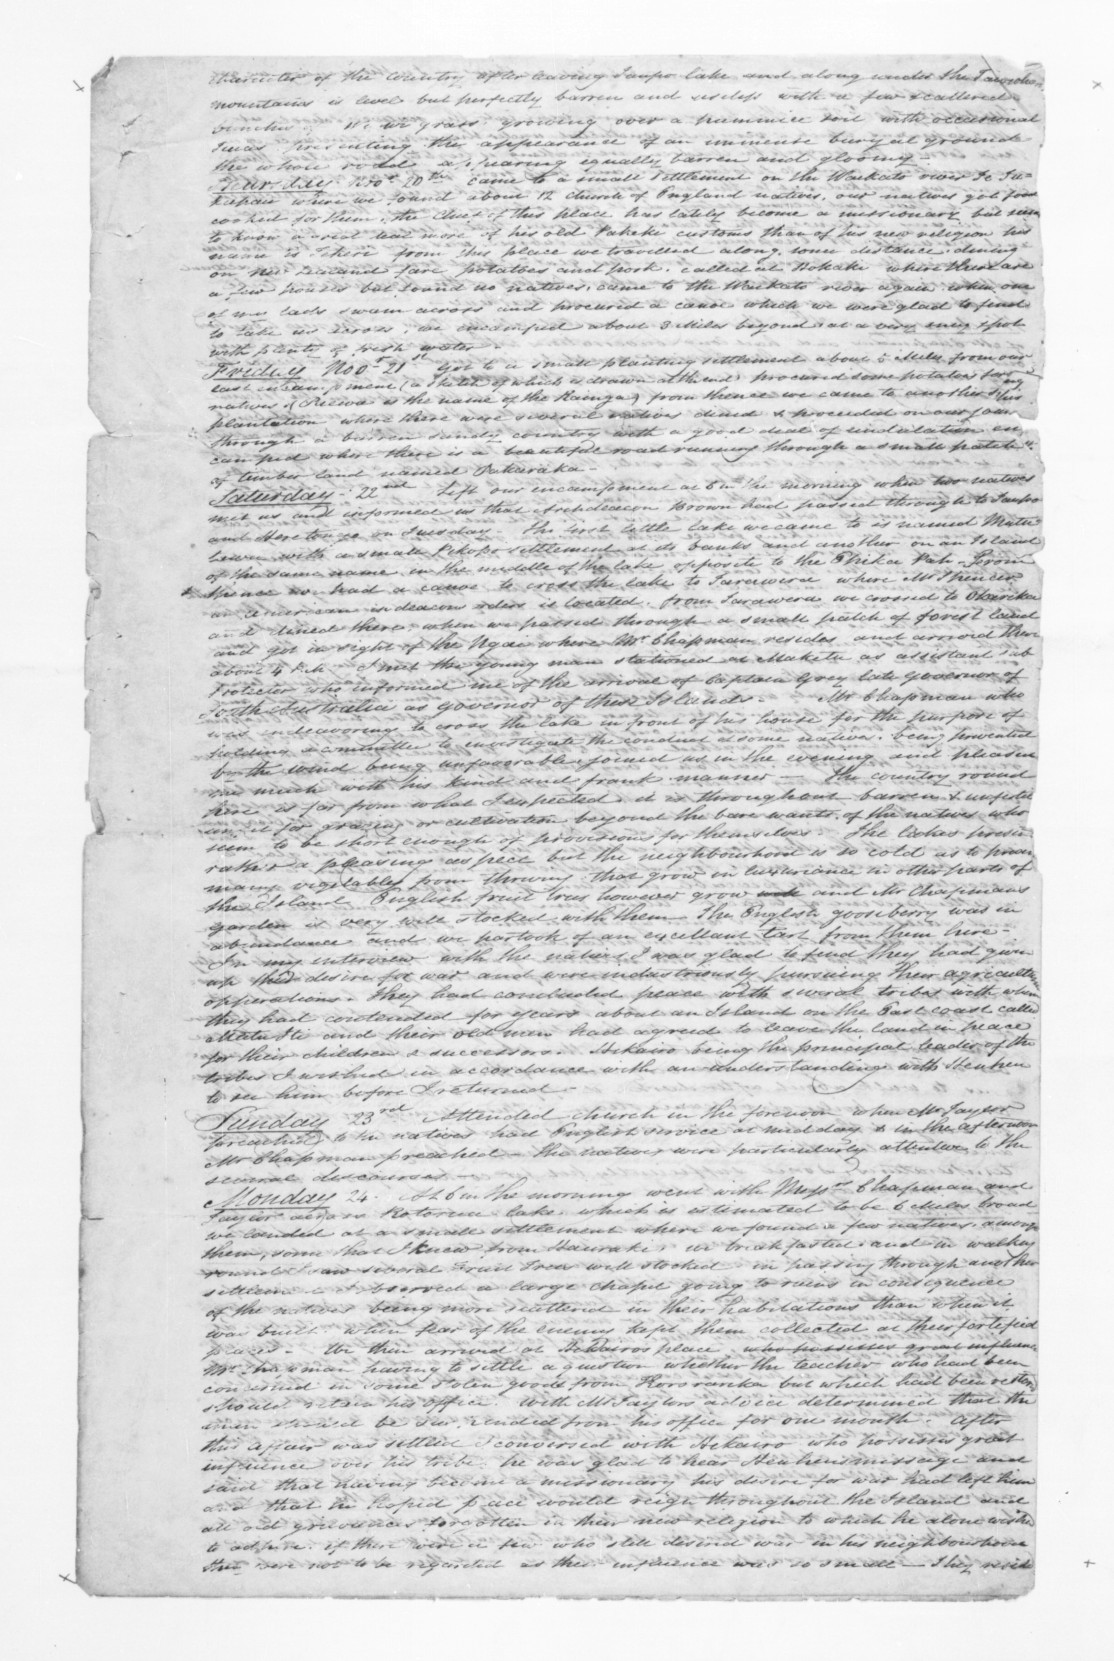 character of the country after leaving Taupo lake and along under the
mountains is level but perfectly barren and useless with a few scattered
bunches of grass growing over a pummice soil with occasional
presenting the appearance of an immense burying ground
the whole appearing equally barren and gloomy -
Thursday Nov. 20th came to a small settlement on the Waikato river
where we found about 12 church of England natives, our natives got food
cooked for them, the chief of this place has lately become a missionary but seems
to know a great deal more of his old Pakeke customs than of his new religion his
name is Tekiri from this place we travelled along some distance, dining
on New Zealand fare potatoes and pork. called at where there are
a few houses but found no natives, came to the Waikato river again when one
of our lads swam across and procured a canoe which we were glad to find
to take us across, we encamped about 3 Miles beyond at a very spot
with plenty of fresh water -
Friday Nov. 21st got to a small planting settlement about 6 Miles from our
last encampment (a sketch of which is drawn at the end) procured some potatoes for
natives (Reewa is the name of the Kainga) from thence we came to another
plantation where there were several natives dined & proceeded on our
through a barren sandy country with a good deal of undulation en
camped where there is a beautiful road running through a small patch
of timber land named Pakaraka -
Saturday - 22nd Left our encampment at 6 in the morning when two natives
met us and informed us that Archdeacon Brown had passed through to Taupo
and on Tuesday. The first little lake we came to is named
with a small Pikopo settlement at its banks and another on an Island
of the same name in the middle of the lake opposite to the Pah - From
thence we had a canoe to cross the lake to Tarawera where Mr Spencer
an American in deacons orders is located. from Tarawera we crossed to Okarika
and dined there, when we passed through a small patch of forest land
and got in sight of the Ngae where Mr. Chapman resides and arrived there
about 4 P.M. I met the young man stationed at Maketu as assistant sub
Protector who informed me of the arrival of Captain Grey late Governor of
South Australia as governor of these Islands. Mr Chapman who
was endeavoring to cross the lake in front of his house for the purpose of
holding a committee to investigate the conduct of some natives. being prevented
by the wind being unfavorable, joined us in the evening and pleased
me much with his kind and frank manner - The country round
here is far from what I expected, it is throughout barren &
it for grazing or cultivation beyond the bare wants of the natives who
seem to be short enough of provisions for themselves. The lakes present
rather a pleasing aspect but the neighbourhood is so cold as to prevent
many vegetables from thriving that grow in luxuriance in other parts of
the Island English fruit trees however grow and Mr Chapmans
garden is very well stocked with them - The English gooseberry was in
abundance and we partook of an excellent tart from them here -
In my interview with the natives I was glad to find they had given
up their desire for war and were industriously pursuing their agricultural
opperations. They had concluded peace with several tribes with whom
they had contended for years about an Island on the East coast called
and their old men had agreed to leave the land in peace
for their children & successors. Hikairo being the principal leader of the
tribes I wished in accordance with an understanding with Heuheu
to see him before I returned -
Sunday 23rd Attended church in the forenoon when Mr Taylor
preached to the natives had English service at midday & in the afternoon
Mr Chapman preached - the natives were particularly attentive to the
several discourses -
Monday 24. At 6 in the morning went with Messrs Chapman and
Taylor across Rotorua lake which is estimated to be 6 Miles broad
we landed at a small settlement where we found a few natives, among
them, some that I knew from Hauraki, we breakfasted, and in walking
round I saw several Fruit Trees well stocked. in passing through another
settlement I observed a large chapel going to ruins in consequence
of the natives being more scattered in their habitations than when it
was built. when fear of the enemy kept them collected at their fortified
places - We then arrived at Hikairos place who possesses great influence
Mr. Chapman having to settle a question whether the teacher who had been
concerned in some stolen goods from Kororarika but which had been restored
should retain his office. With Mr Taylors advice determined that the
man should be suspended from his office for one month. After
this affair was settled I conversed with Hikairo who possesses great
influence over his tribe. he was glad to hear Heuheus message and
said that having become a missionary his desire for war had left him
and that he hoped peace would reign throughout the Island and
all old grievances forgotten in their new religion to which he alone wished
to aspire. if there were a few who still desired war in his neighbourhood
they were not to be regarded as their influence was so small - They